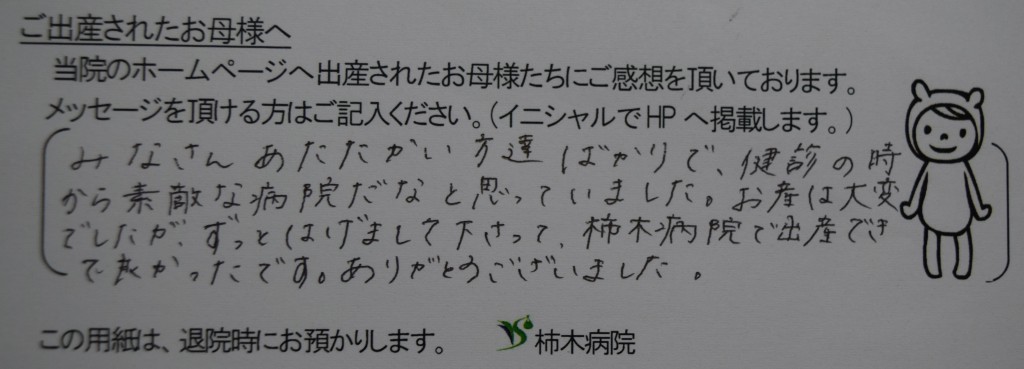 ご出産されたお母様へ
当院のホームページへ出産されたお母様たちにご感想を頂いております。
メッセージを頂ける方はご記入ください。(イニシャルでHPへ掲載します。)
みなさんあたたかい方達ばかりで、健診の時
から素敵な病院だなと思っていました。お産は大変
でしたが、ずっとはげまして下さって、柿木病院で出産でき
て良かったです。ありがとうございました。
この用紙は、退院時にお預かりします。
柿木病院